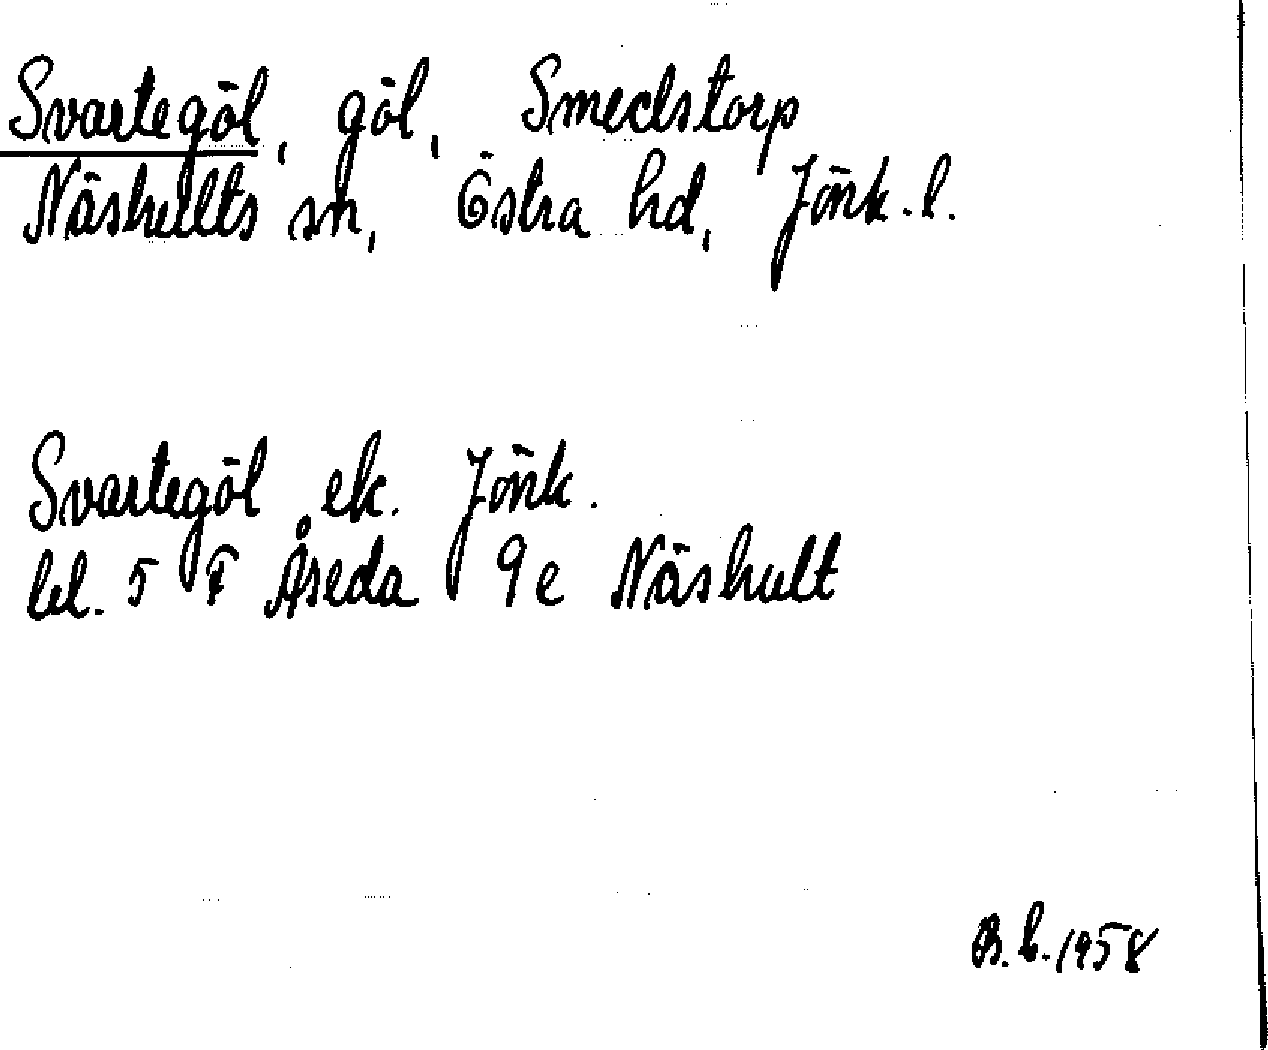 Svartegöl, göl, Smedstorp
Näshults sn, Östra hd, Jönk. l.
Svartegöl ek. Jönk.
bl. 5 F Åseda 9e Näshult
B. L. 1958